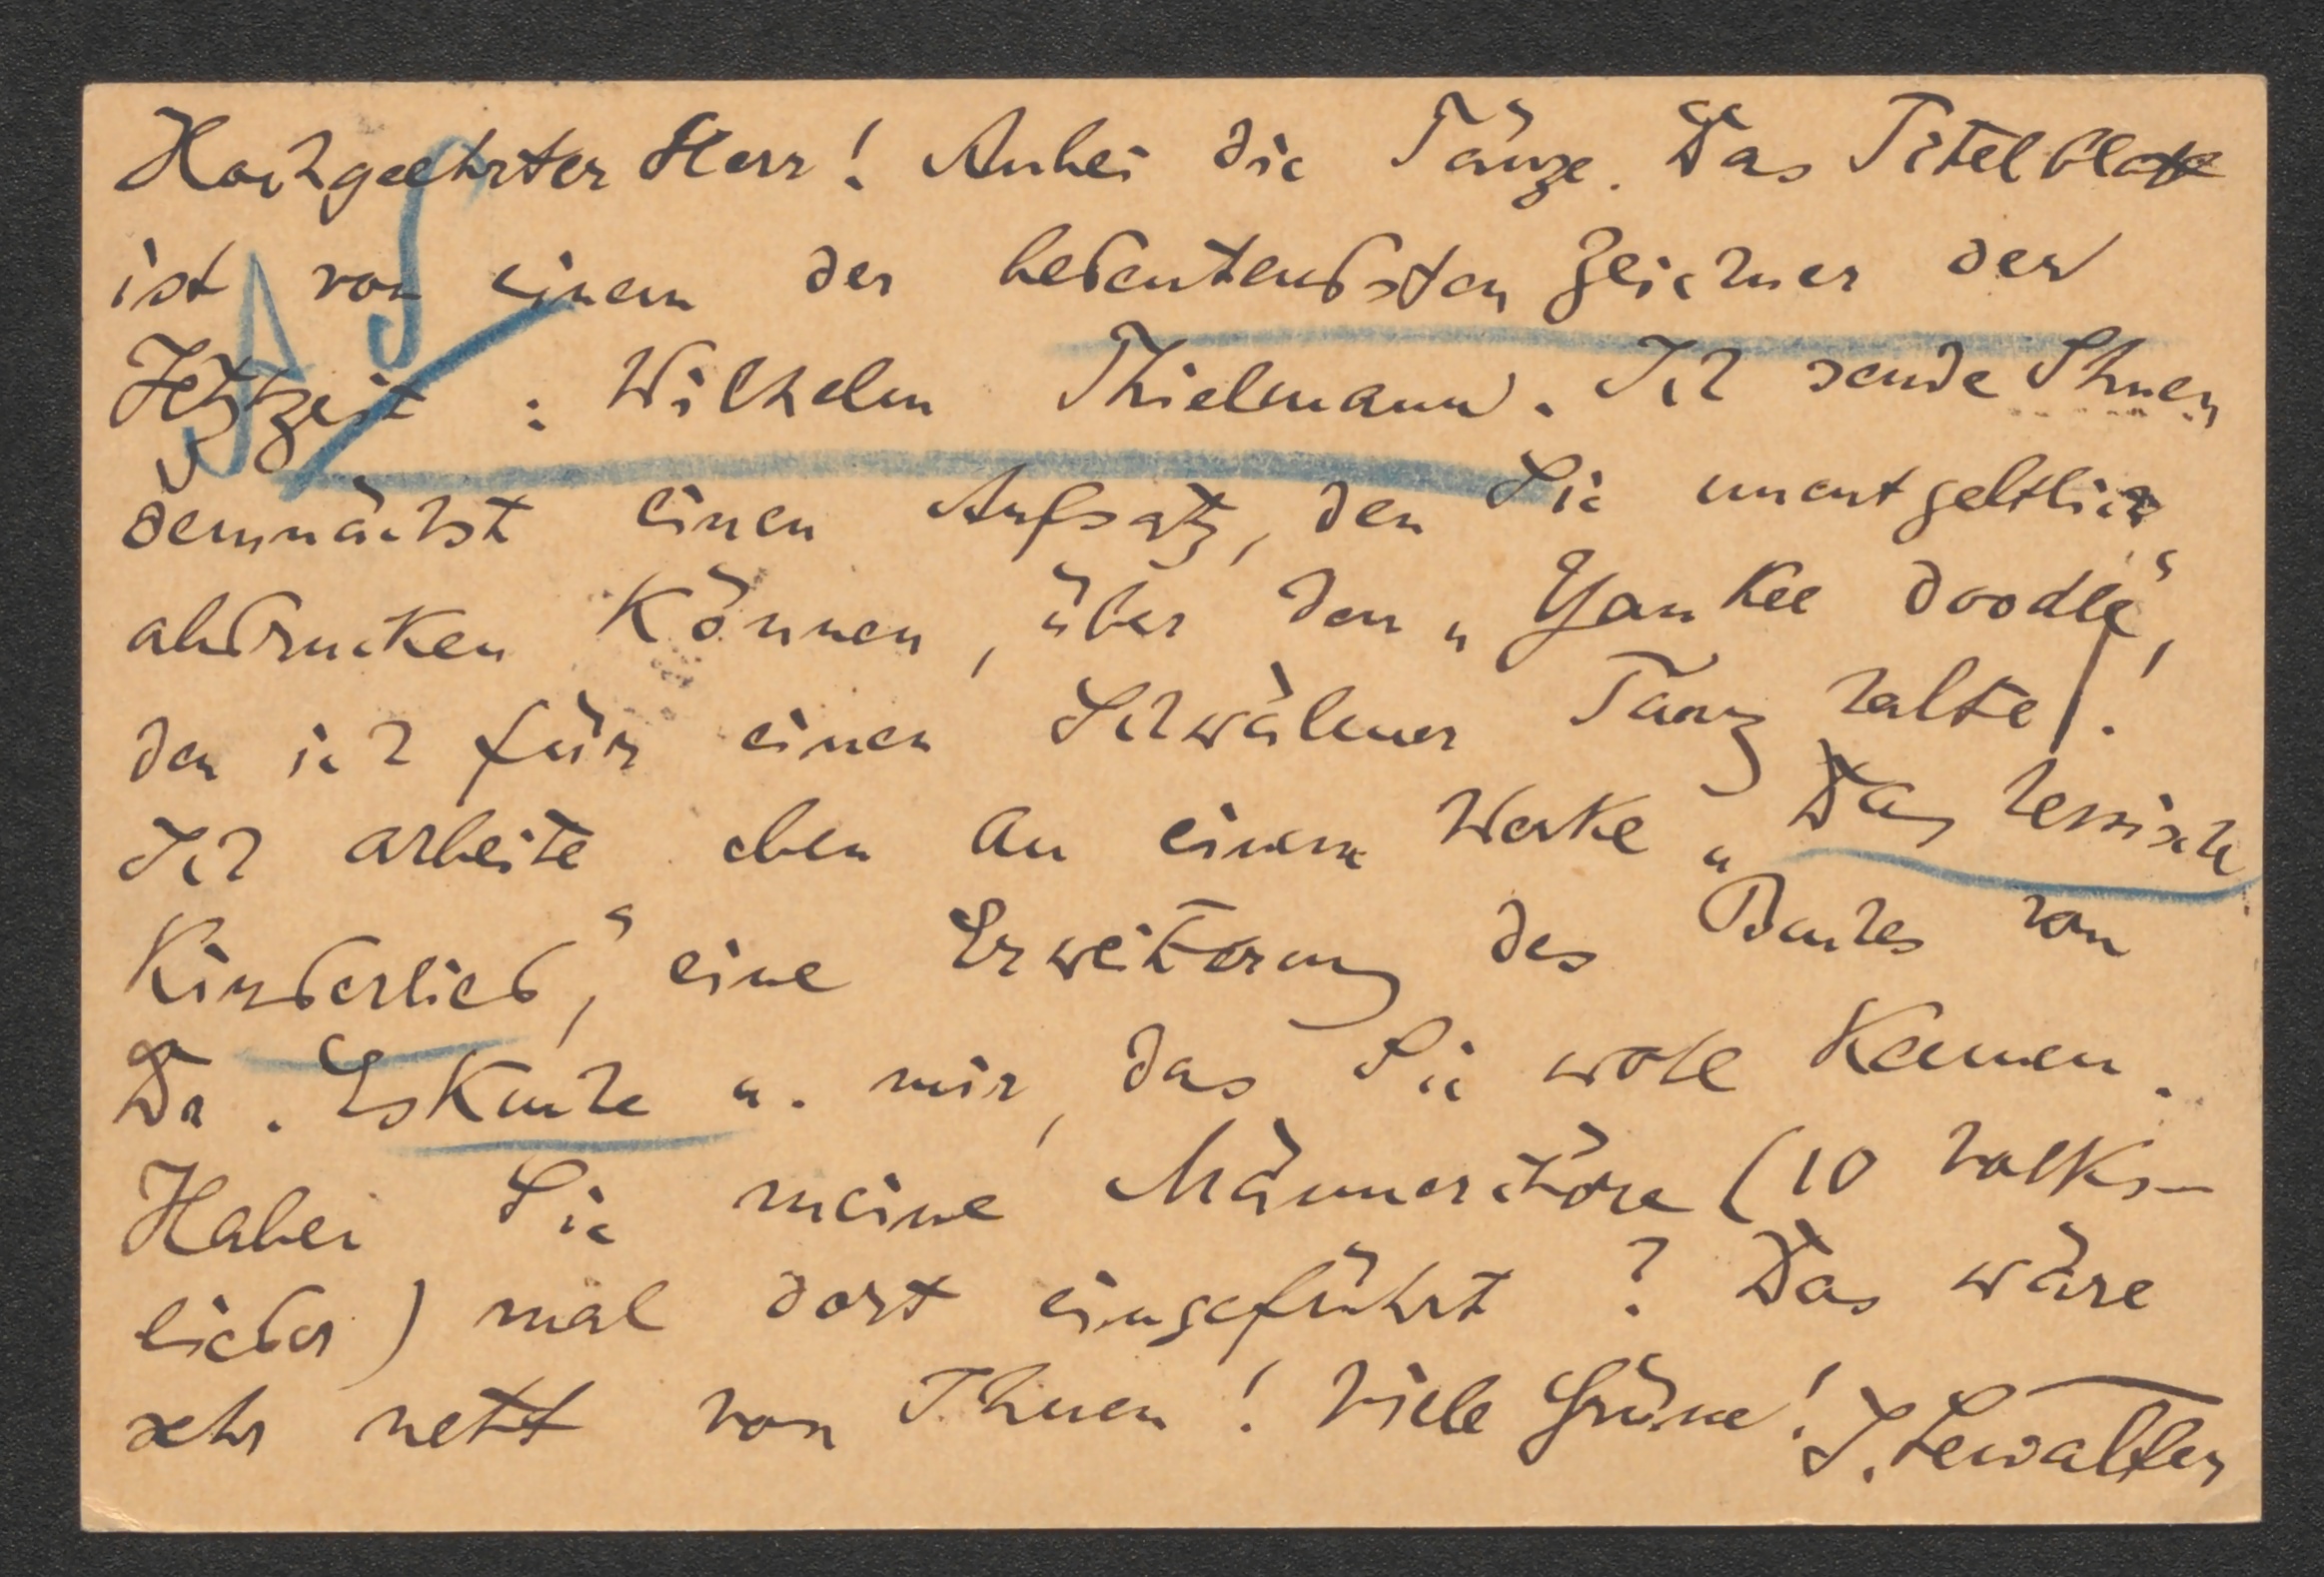 Hochgeehrter Herr! Anbei die Tänze. Das Titelblatt
ist von einem der bedeutendsten Zeichner der
Jetztzeit: Wilhelm Thielmann. Ich sende Ihnen
demnächst einen Aufsatz, den Sie unentgeltlich
abdrucken können, über den „Yankee doodle“,
den ich für einen Schwälmer Tanz halte!
Ich arbeite eben an einem Werke „Das hessische
Kinderlied“, eine Erweiterung des Buches von
Dr. Eskuche u. mir, das Sie wohl kennen.
Haben Sie meine Männerchöre (10 Volks-
lieder) mal dort eingeführt? Das wäre
sehr nett von Ihnen! Viele Grüsse! J. Lewalter